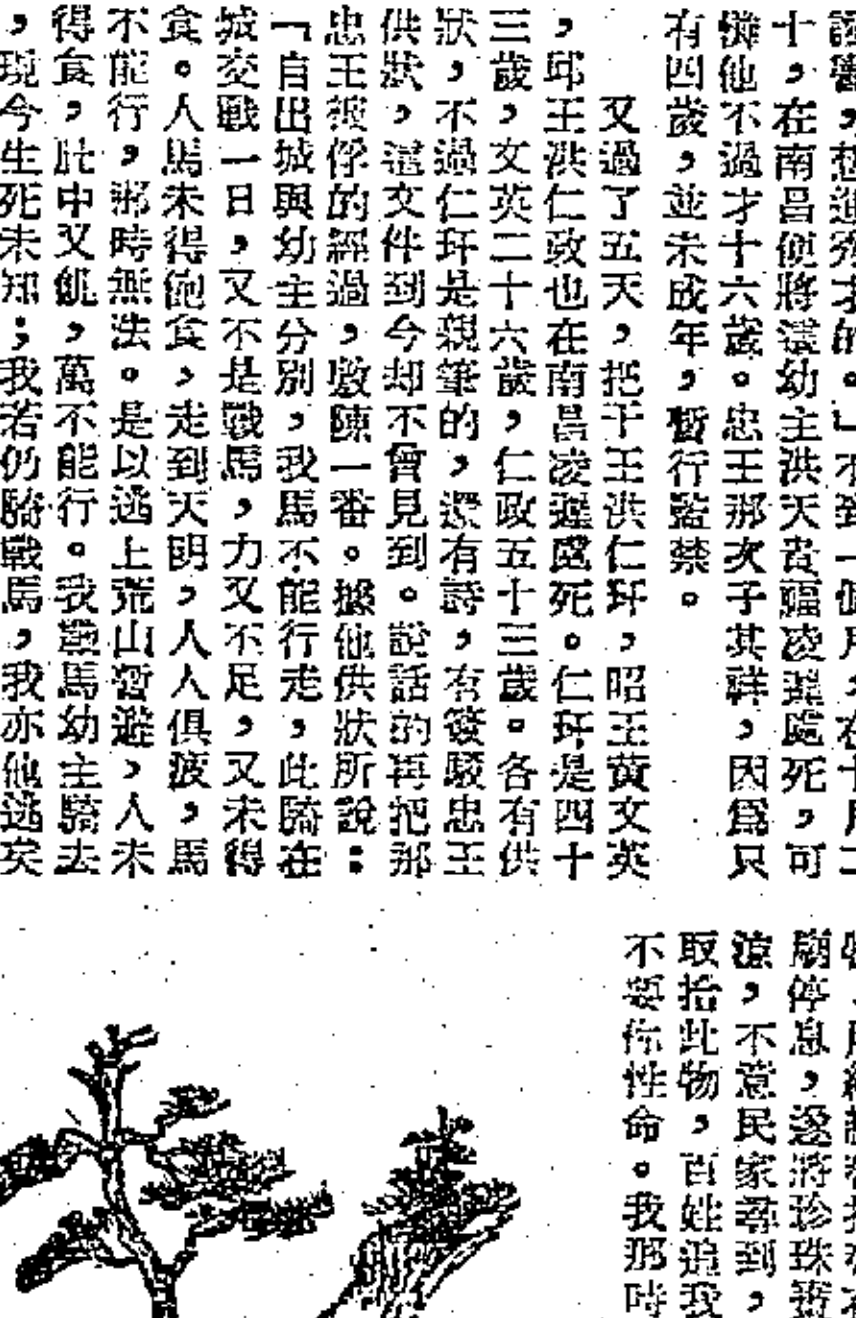 十，在南昌便將這幼主洪天貴福凌遲處死，可
憐他不過才十六歲。忠王那次子其祥，因爲只
有四歲，並未成年，暫行監禁。
又過了五天，把干王洪仁玕，昭王黃文英
，邱王洪仁政也在南昌凌遲處死。仁玕是四十
三歲，文英二十六歲，仁政五十三歲。各有供
狀，不過仁玕是親筆的，還有詩，有簽駁忠王
供狀，這文件到今却不曾見到。說話的再把那
忠王被俘的經過，敷陳一番。據他供狀所說：
「自出城與幼主分別，我馬不能行走，此騎在
城交戰一日，又不是戰馬，力又不足，又未得
食。人馬未得飽食，走到天明，人人俱疲，馬
不能行，那時無法。是以逃上荒山暫避，人未
得食，肚中又飢，萬不能行。我戰馬幼主騎去
，現今生死未知；我若仍騎戰馬，我亦他逃矣
廟停息，遂將珍珠
，不意民家尋到，
取拾此物，百姓追我
不要你性命。我那時